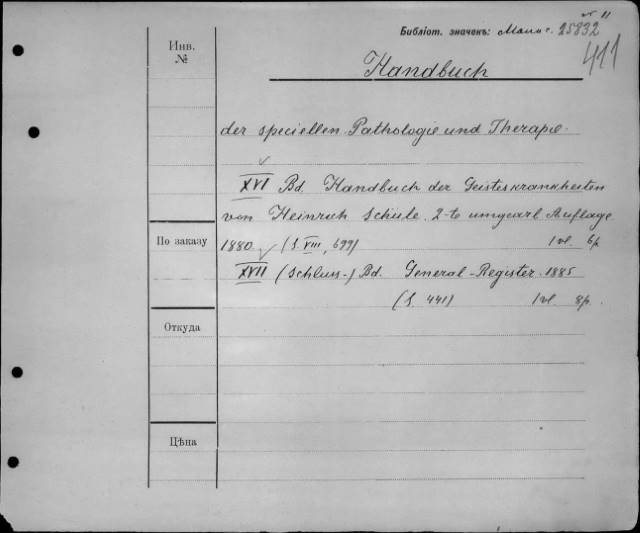 11
Библіот. значекъ: 25832
411
Инв.
№
Handbuch
der speciellen Pathologie und Therapie.
XVI Bd. Handbuch der Geisteskrankheiten
von Heinrich Schüle. 2-te umgearb Auflage
По заказу
1880 (S. VIII, 699) 1 vl. 6 p.
XVII (Schluss-) Bd. General-Register 1885
(S. 441) 1 vl. 8 p.
Откуда
Цѣна